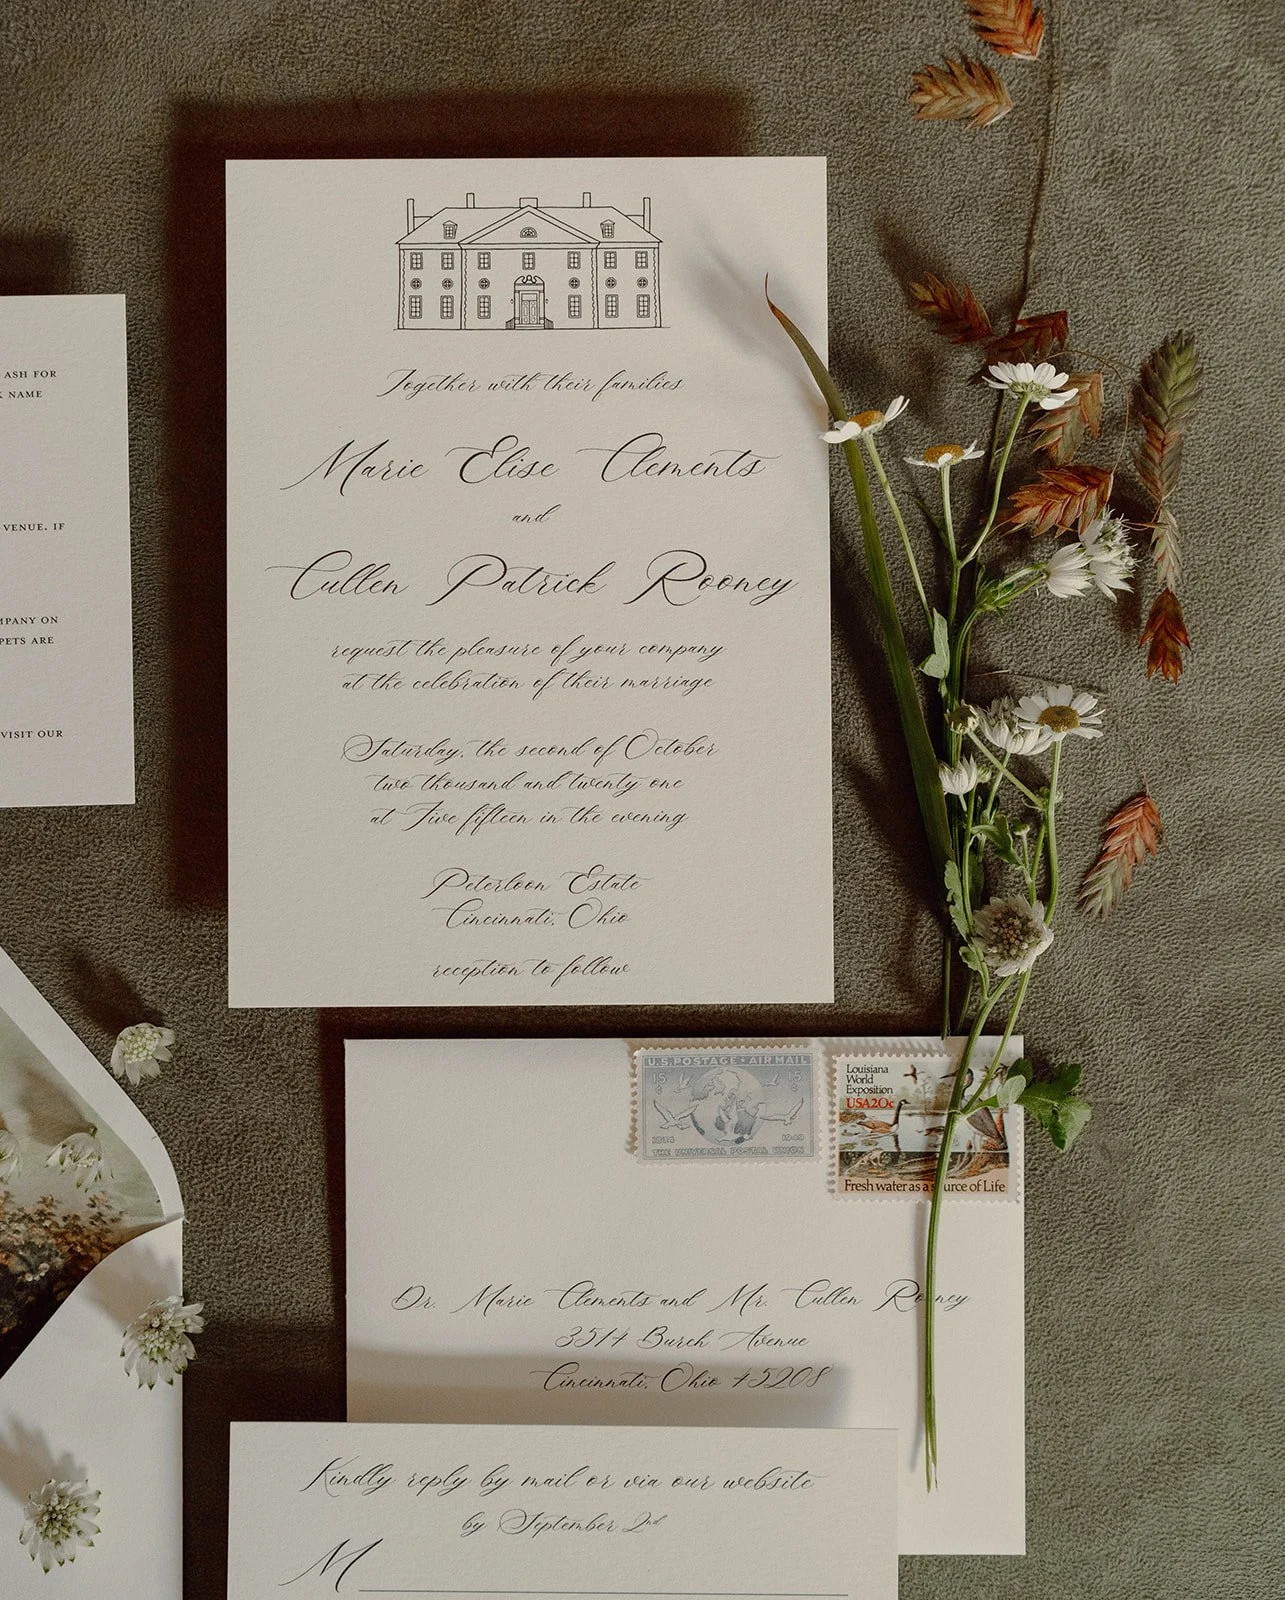 Together with their families
Marie Elise Clements
and
Cullen Patrick Rooney
request the pleasure of your company
at the celebration of their marriage
Saturday, the second of October
two thousand and twenty one
at Five fifteen in the evening
Peterloon Estate
Cincinnati, Ohio
reception to follow
ASH FOR
NAME
VENUE. IF
MPANY ON
PETS ARE
VISIT OUR
U.S. POSTAGE AIR MAIL
15¢ 15¢
1874 1949
THE UNIVERSAL POSTAL UNION
Louisiana
World
Exposition
USA20c
Fresh water as a urce of Life
Dr. Marie Clements and Mr. Cullen Rooney
3514 Burch Avenue
Cincinnati, Ohio 45208
Kindly reply by mail or via our website
by September 2nd
M